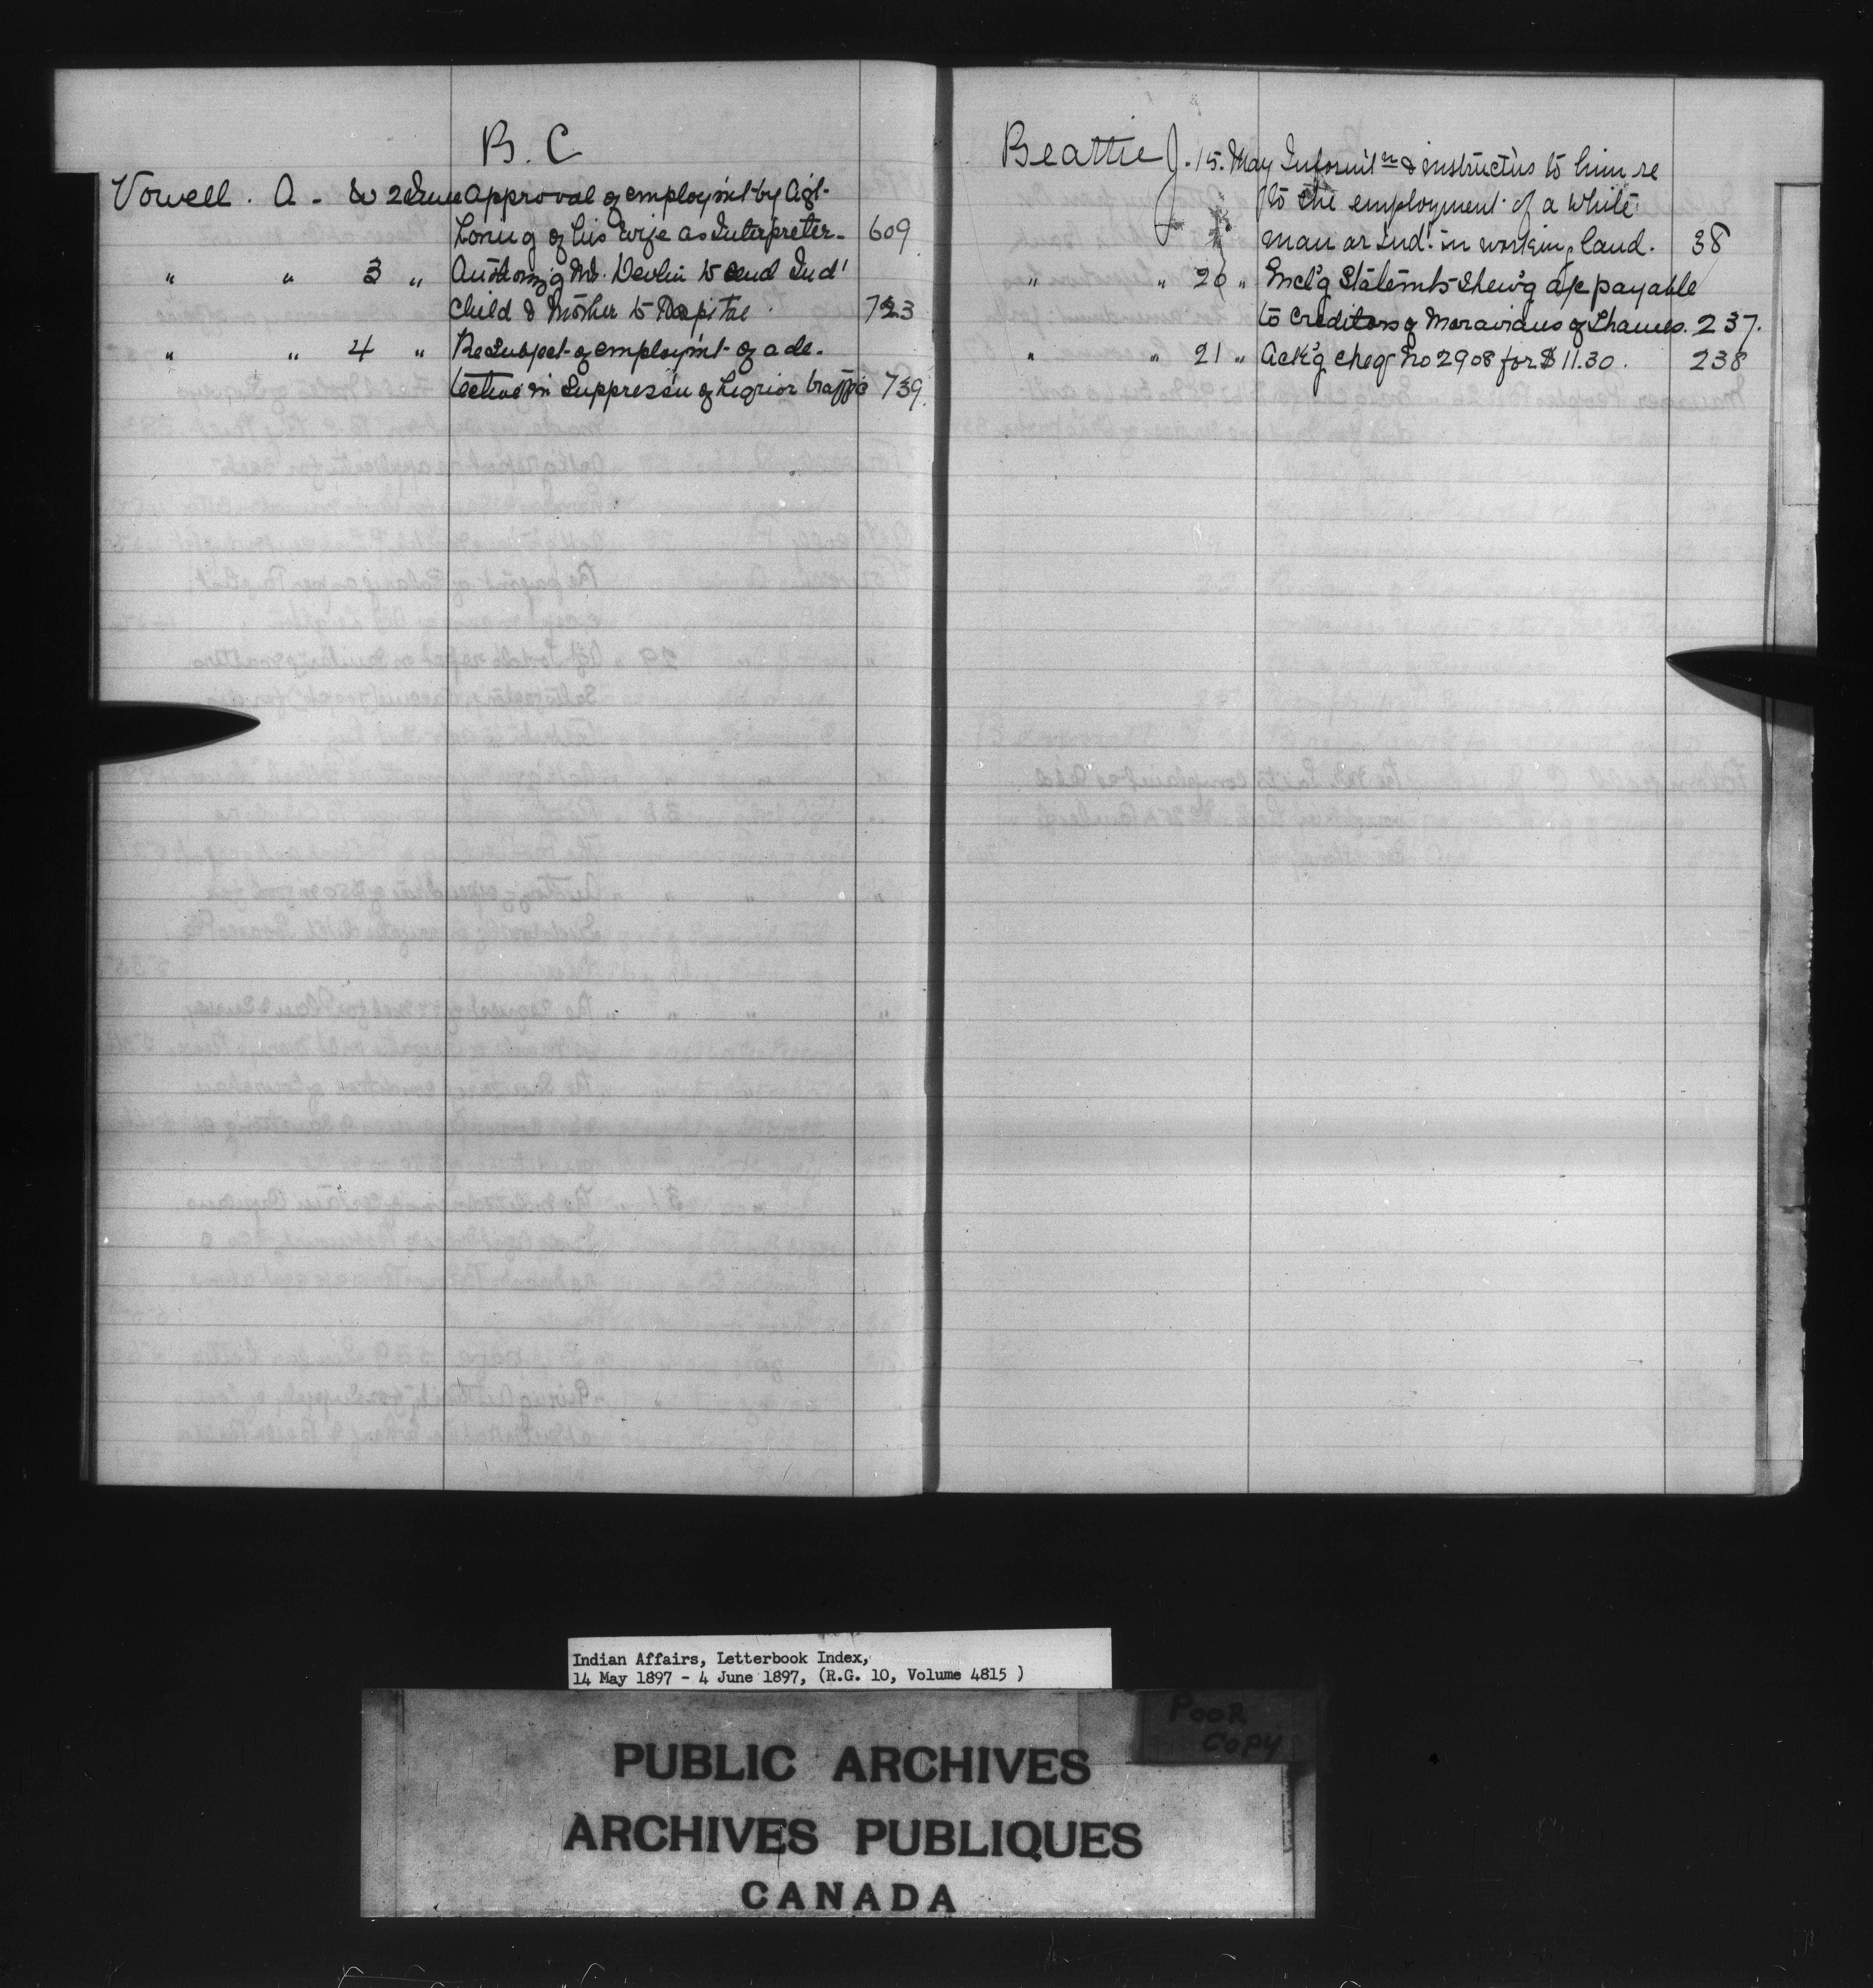 B. C
Vowell. A. W 2 June Approval of employm't by Agt.
Loring of his wife as Interpreter. 609
" " 3 " Authorizg Mr. Devlin to send Ind'
child & Mother to Hospital. 723
" " 4 " Re Subject of employm't of a de-
tective in Suppress'n of Liquior traffic 739.
Beattie J. 15. May Informt'n & instruct'ns to him re
to the employment of a White
man or Ind'. in working land. 38
" " 20 " Encl'g Statem'ts Shew'g a/c payable
to Creditors of Moravians of Thames. 237.
" " 21 " Ack'g cheq No 2908 for $11.30. 238
Indian Affairs, Letterbook Index,
14 May 1897 - 4 June 1897, (R.G. 10, Volume 4815 )
POOR
COPY
PUBLIC ARCHIVES
ARCHIVES PUBLIQUES
CANADA